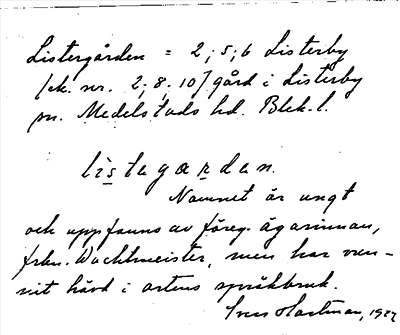 Listergården = 2; 5; 6 Listerby
/ek. nr. 2; 8; 10/ gård i Listerby
sn. Medelstads hd. Blek. l.
listagarden.
Namnet är ungt
och uppfanns av föreg. ägarinnan,
frkn. Wachtmeister, men har vun-
nit hävd i ortens språkbruk.
Sven Hartman, 1927